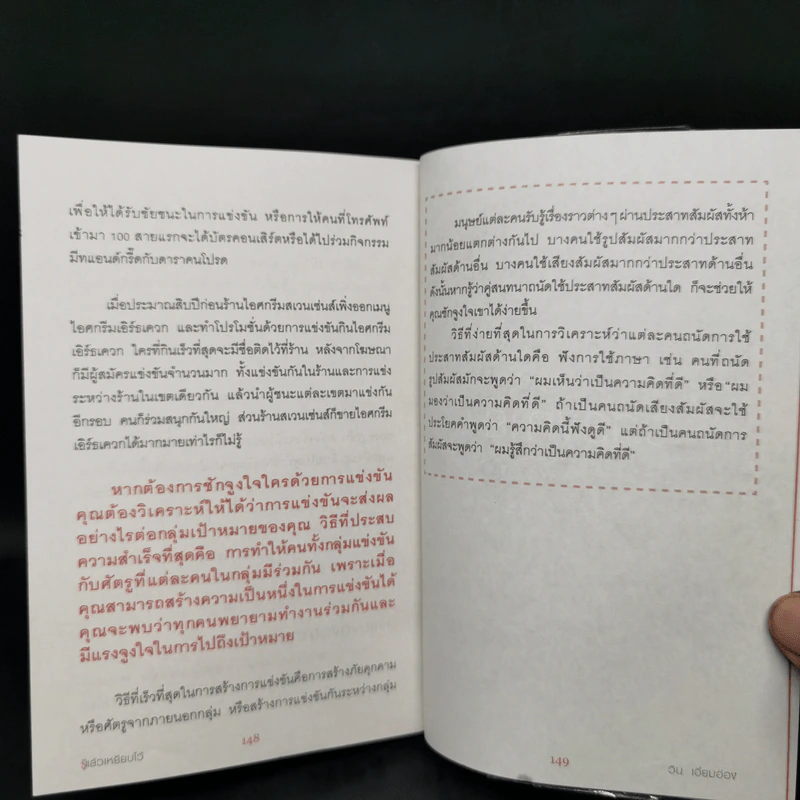 เพื่อให้ได้รับชัยชนะในการแข่งขัน หรือการให้คนที่โทรศัพท์
เข้ามา 100 สายแรกจะได้บัตรคอนเสิร์ตหรือได้ไปร่วมกิจกรรม
มีทแอนด์กรี๊ดกับดาราคนโปรด
เมื่อประมาณสิบปีก่อนร้านไอศกรีมสเวนเซ่นส์เพิ่งออกเมนู
ไอศกรีมเอิร์ธเควก และทำโปรโมชั่นด้วยการแข่งขันกินไอศกรีม
เอิร์ธเควก ใครที่กินเร็วที่สุดจะมีชื่อติดไว้ที่ร้าน หลังจากโฆษณา
ก็มีผู้สมัครแข่งขันจำนวนมาก ทั้งแข่งขันกันในร้านและการแข่ง
ระหว่างร้านในเขตเดียวกัน แล้วนำผู้ชนะแต่ละเขตมาแข่งกัน
อีกรอบ คนก็ร่วมสนุกกันใหญ่ ส่วนร้านสเวนเซ่นส์ก็ขายไอศกรีม
เอิร์ธเควกได้มากมายเท่าไรก็ไม่รู้
หากต้องการชักจูงใจใครด้วยการแข่งขัน
คุณต้องวิเคราะห์ให้ได้ว่าการแข่งขันจะส่งผล
อย่างไรต่อกลุ่มเป้าหมายของคุณ วิธีที่ประสบ
ความสำเร็จที่สุดคือ การทำให้คนทั้งกลุ่มแข่งขัน
กับศัตรูที่แต่ละคนในกลุ่มมีร่วมกัน เพราะเมื่อ
คุณสามารถสร้างความเป็นหนึ่งในการแข่งขันได้
คุณจะพบว่าทุกคนพยายามทำงานร่วมกันและ
มีแรงจูงใจในการไปถึงเป้าหมาย
วิธีที่เร็วที่สุดในการสร้างการแข่งขันคือการสร้างภัยคุกคาม
หรือศัตรูจากภายนอกกลุ่ม หรือสร้างการแข่งขันกันระหว่างกลุ่ม
148
รู้แล้วเหยียบไว้
มนุษย์แต่ละคนรับรู้เรื่องราวต่าง ๆ ผ่านประสาทสัมผัสทั้งห้า
มากน้อยแตกต่างกันไป บางคนใช้รูปสัมผัสมากกว่าประสาท
สัมผัสด้านอื่น บางคนใช้เสียงสัมผัสมากกว่าประสาทด้านอื่น
ดังนั้นหากรู้ว่าคู่สนทนาถนัดใช้ประสาทสัมผัสด้านใด ก็จะช่วยให้
คุณชักจูงใจเขาได้ง่ายขึ้น
วิธีที่ง่ายที่สุดในการวิเคราะห์ว่าแต่ละคนถนัดการใช้
ประสาทสัมผัสด้านใดคือ ฟังการใช้ภาษา เช่น คนที่ถนัด
รูปสัมผัสมักจะพูดว่า "ผมเห็นว่าเป็นความคิดที่ดี" หรือ "ผม
มองว่าเป็นความคิดที่ดี" ถ้าเป็นคนถนัดเสียงสัมผัสจะใช้
ประโยคคำพูดว่า "ความคิดนี้ฟังดูดี" แต่ถ้าเป็นคนถนัดการ
สัมผัสจะพูดว่า "ผมรู้สึกว่าเป็นความคิดที่ดี"
149
วิน เอี่ยมอ่อง